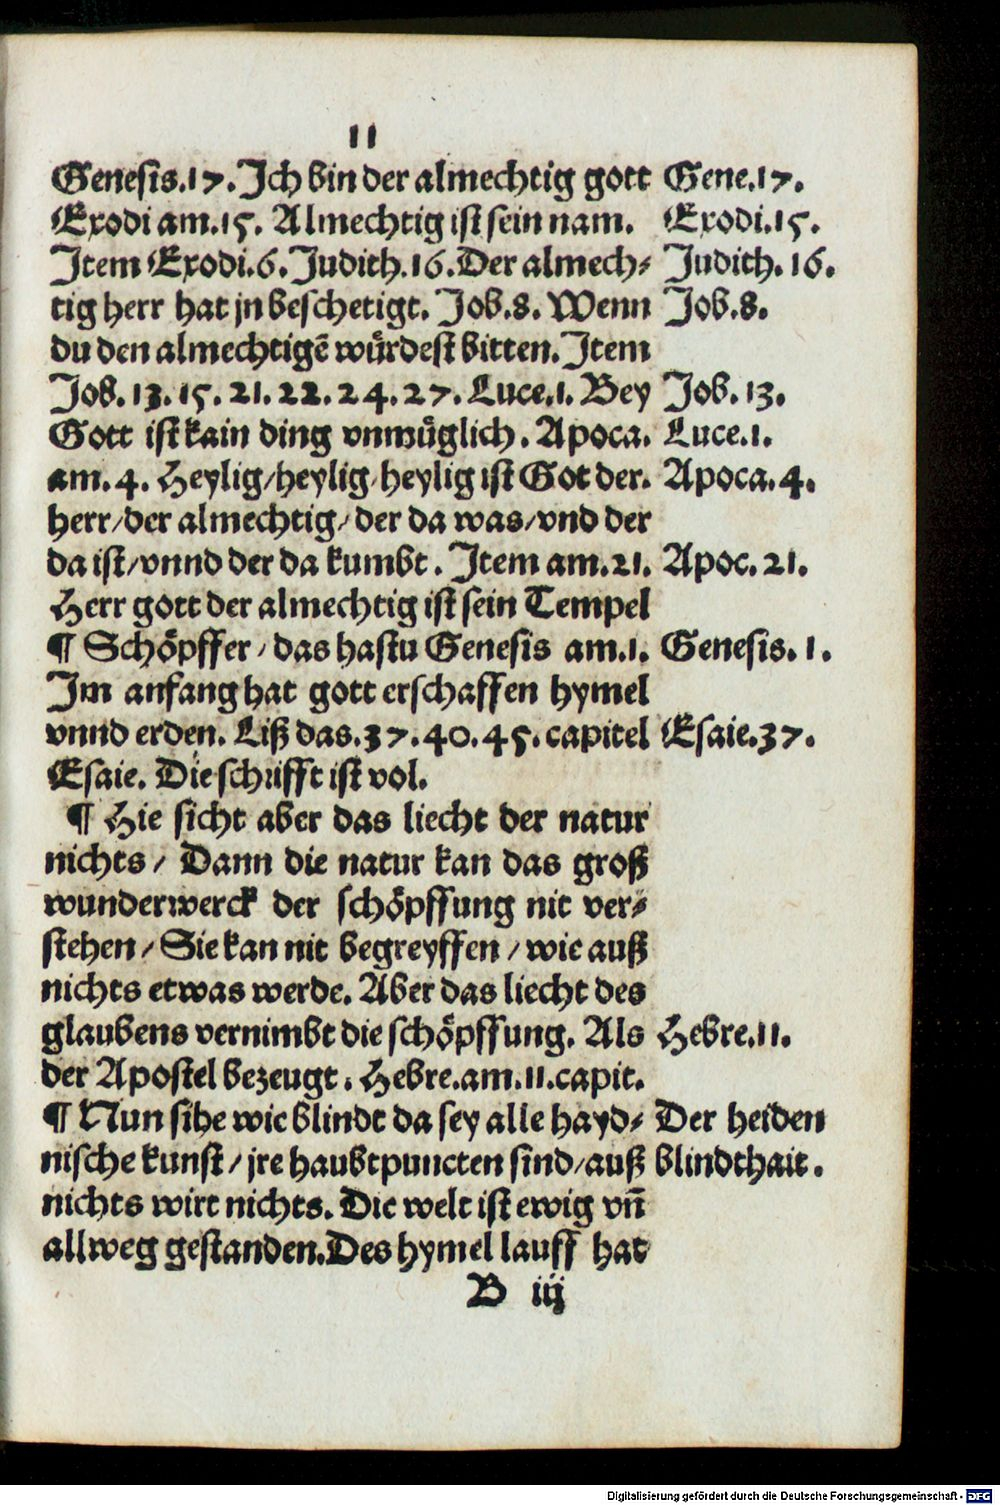 11
Genesis.17. Ich bin der almechtig gott Gene.17.
Exodi am.15. Almechtig ist sein nam. Exodi.15.
Item Exodi.6. Judith.16. Der almech⸗ Judith. 16.
tig herr hat jn beschetigt. Job.8. Wenn Job.8.
du den almechtigē wuͤrdest bitten. Item
Job. 13. 15. 21. 22. 24. 27. Luce.1. Bey Job. 13.
Gott ist kain ding vnmuͤglich. Apoca. Luce.1.
am. 4. Heylig/heylig/heylig ist Got der. Apoca.4.
herr/der almechtig/ der da was/vnd der
da ist/vnnd der da kumbt. Item am.21. Apoc. 21.
Herr gott der almechtig ist sein Tempel
¶ Schoͤpffer/ das hastu Genesis am.1. Genesis. 1.
Im anfang hat gott erschaffen hymel
vnnd erden. Liß das.37.40.45.capitel Esaie.37.
Esaie. Die schrifft ist vol.
¶ Hie sicht aber das liecht der natur
nichts/ Dann die natur kan das groß
wunderwerck der schoͤpffung nit ver⸗
stehen/ Sie kan nit begreyffen/ wie auß
nichts etwas werde. Aber das liecht des
glaubens vernimbt die schoͤpffung. Als Hebre.11.
der Apostel bezeugt. Hebre.am.11.capit.
¶ Nun sihe wie blindt da sey alle hayd⸗ Der heiden
nische kunst/ jre haubtpuncten sind/auß blindthait.
nichts wirt nichts. Die welt ist ewig vn̄
allweg gestanden. Des hymel lauff hat
B iij
Digitalisierung gefördert durch die Deutsche Forschungsgemeinschaft - DFG